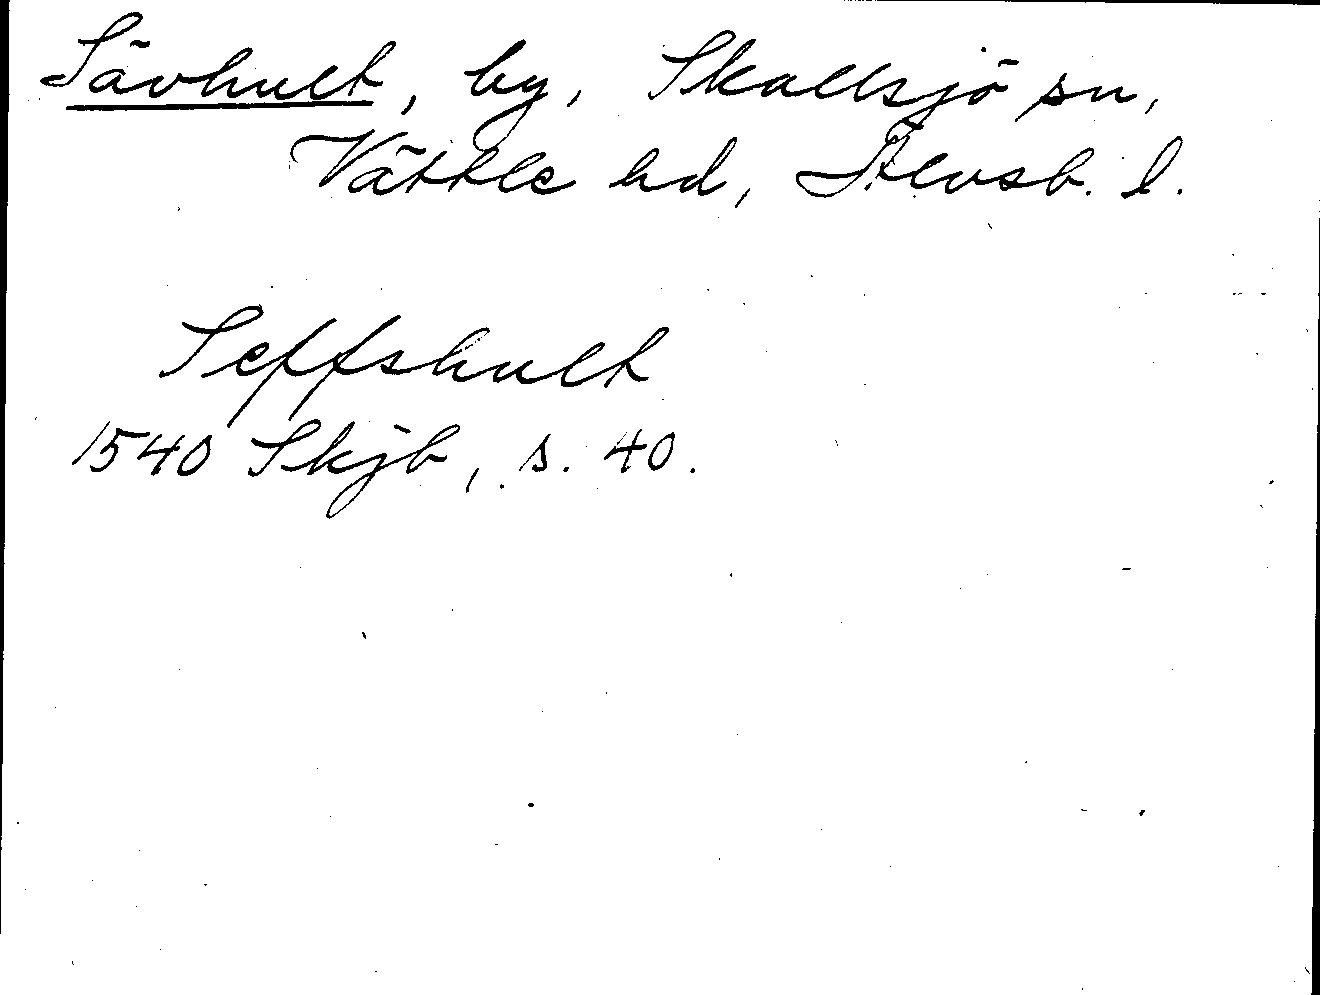 Sävhult, by, Skallsjö sn,
Vättle hd, Älvsb. l.
Seffshult
1540 Skjb, s. 40.